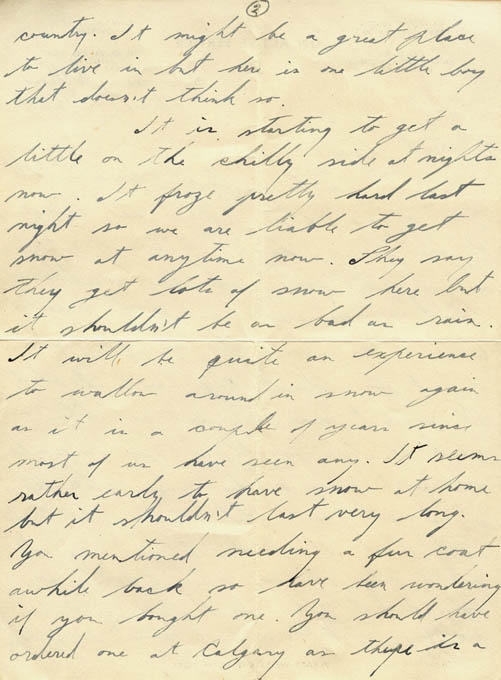 2
country. It might be a great place
to live in but here is one little boy
that doesn't think so.
It is starting to get a
little on the chilly side at nights
now. It froze pretty hard last
night so we are liable to get
snow at anytime now. They say
they get lots of snow here but
it shouldn't be as bad as rain.
It will be quite an experience
to wallow around in snow again
as it is a couple of years since
most of us have seen any. It seems
rather early to have snow at home
but it shouldn't last very long.
You mentioned needing a fur coat
awhile back so have been wondering
if you bought one. You should have
ordered one at Calgary as there is a